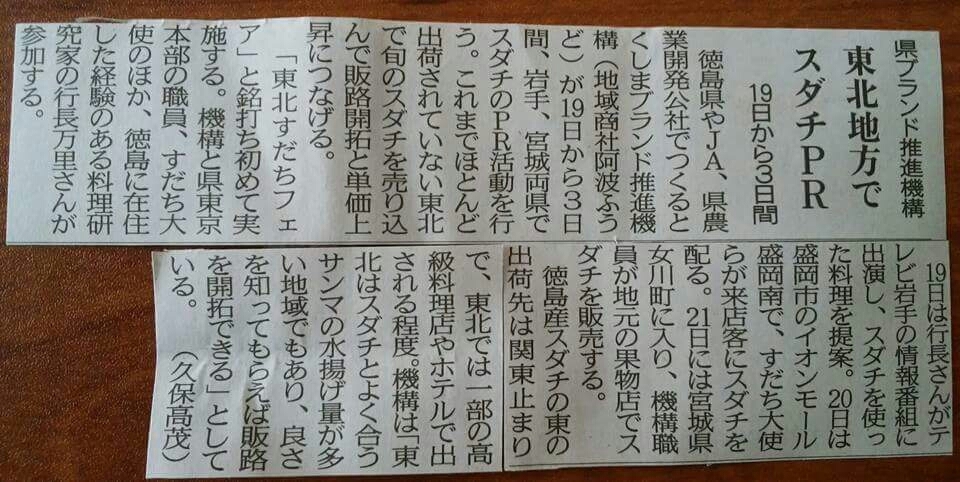 県ブランド推進機構
東北地方で
スダチPR
19日から3日間
徳島県やJA、県農
業開発公社でつくると
くしまブランド推進機
構（地域商社阿波ふう
ど）が19日から3日
間、岩手、宮城両県で
スダチのPR活動を行
う。これまでほとんど
出荷されていない東北
で旬のスダチを売り込
んで販路開拓と単価上
昇につなげる。
「東北すだちフェ
ア」と銘打ち初めて実
施する。機構と県東京
本部の職員、すだち大
使のほか、徳島に在住
した経験のある料理研
究家の行長万里さんが
参加する。
19日は行長さんがテ
レビ岩手の情報番組に
出演し、スダチを使っ
た料理を提案。20日は
盛岡市のイオンモール
盛岡南で、すだち大使
らが来店客にスダチを
配る。21日には宮城県
女川町に入り、機構職
員が地元の果物店でス
ダチを販売する。
徳島産スダチの東の
出荷先は関東止まり
で、東北では一部の高
級料理店やホテルで出
される程度。機構は「東
北はスダチとよく合う
サンマの水揚げ量が多
い地域でもあり、良さ
を知ってもらえば販路
を開拓できる」として
いる。　（久保高茂）